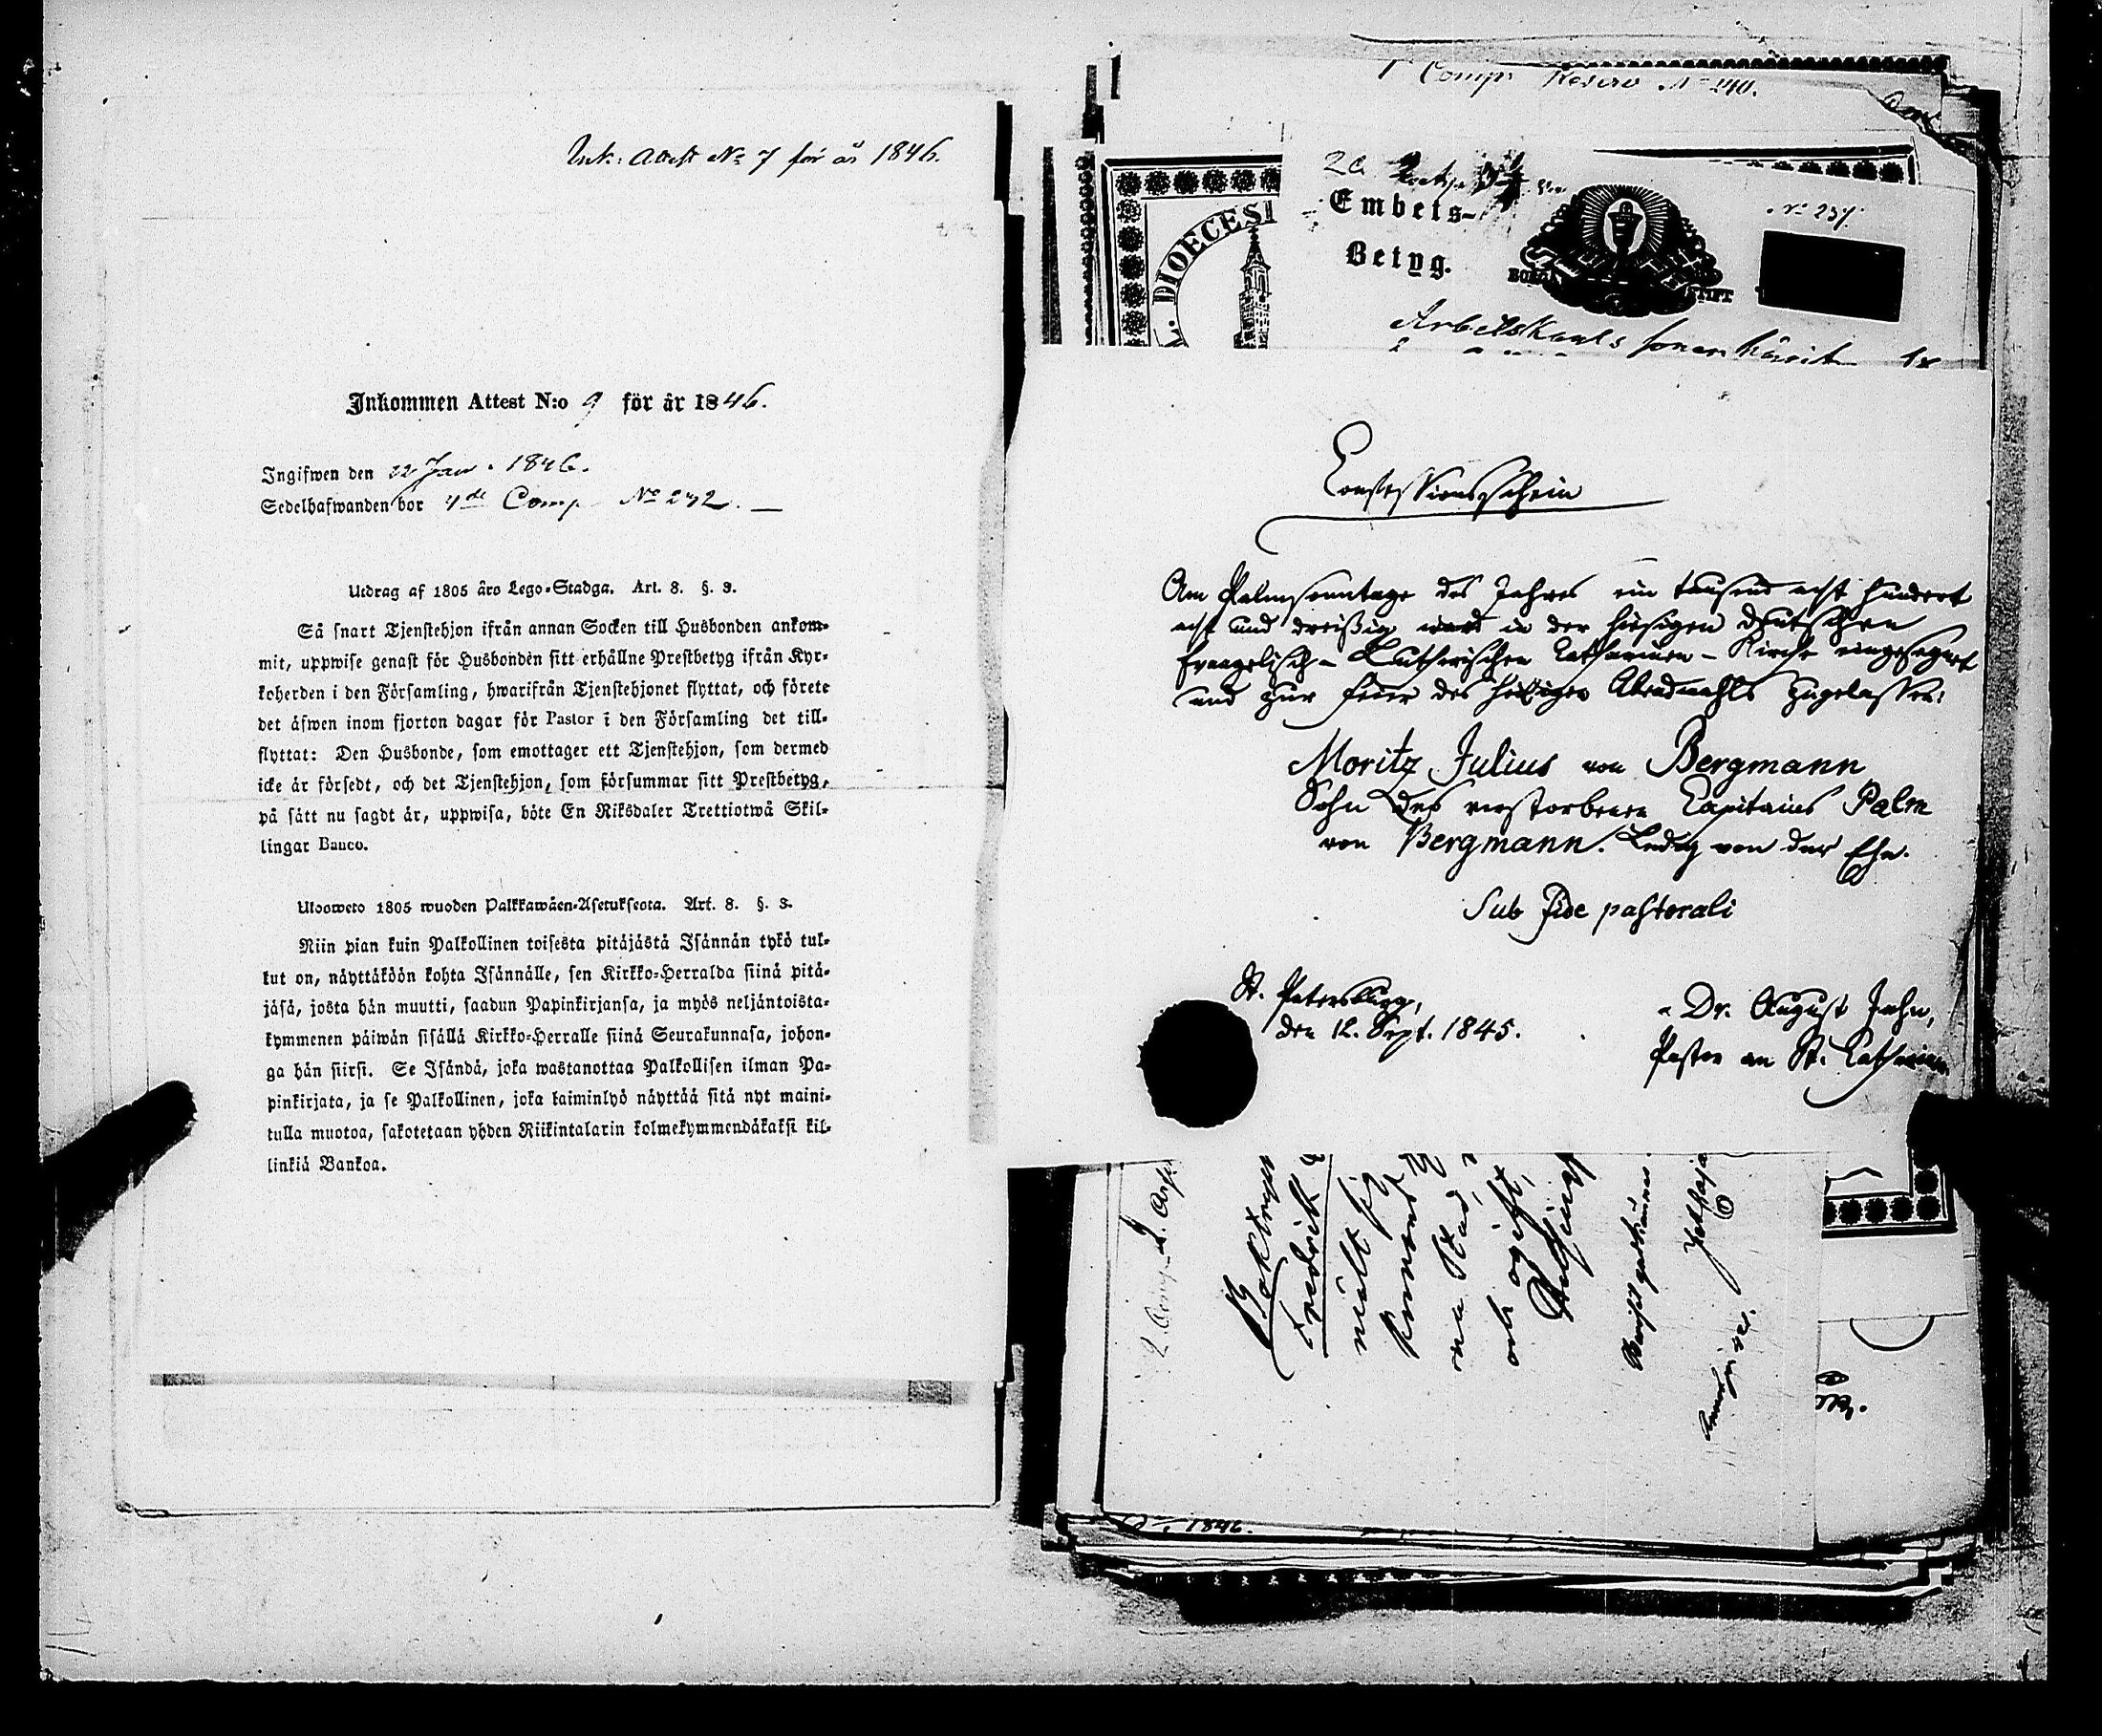 Ink: Attest No 7 för år 1846.
Inkommen Attest N:o 9 för år 1846.
Ingifwen den 22 Jan. 1846.
Sedelhafwanden bor 4de Comp No 242.
Utdrag af 1805 års Lego-Stadga. Art. 8. §. 3.
Så snart Tjenstehjon ifrån annan Socken till Husbonden ankom-
mit, uppwise genast för Husbonden sitt erhållne Prestbetyg ifrån Kyr-
koherden i den Församling, hwarifrån Tjenstehjonet flyttat, och förete
det äfwen inom fjorton dagar för Pastor i den Församling det till-
flyttat: Den Husbonde, som emottager ett Tjenstehjon, som dermed
icke är försedt, och det Tjenstehjon, som försummar sitt Prestbetyg,
på sätt nu sagdt är, uppwisa, böte En Riksdaler Trettiotwå Skil-
lingar Banco.
Uloosweto 1805 wuoden Palkkawäen-Asetuksesta. Art. 8. §. 3.
Niin pian kuin Palkollinen toisesta pitäjästä Isännän tykö tul-
kut on, näyttäköön kohta Isännälle, sen Kirkko-Herralda siinä pitä-
jäsä, josta hän muutti, saadun Papinkirjansa, ja myös neljäntoista-
kymmenen päiwän sisällä Kirkko-Herralle siinä Seurakunnasa, johon-
ga hän siirsi. Se Isändä, joka wastanottaa Palkollisen ilman Pa-
pinkirjata, ja se Palkollinen, joka laiminlyö näyttää sitä nyt maini-
tulla muotoa, sakotetaan yhden Riikintalarin kolmekymmendäkaksi kil-
linkiä Bankoa.
1 Comp Reserv No 240.
DIOECESI
Embets-
Betyg.
No 237.
STIFT
Arbetskarls sonen
Confessionsschein
Am Palmsonntage des Jahres ein tausend acht hundert
acht und dreißig ward in der hiesigen deutschen
Evangelisch-Lutherischen Catharinen-Kirche eingesegnet
und zur Feier des heiligen Abendmahls zugelassen:
Moritz Julius von Bergmann
Sohn des verstorbenen Capitains Palm
von Bergmann. Ledig von der Ehe.
Sub Fide pastorali
St. Petersburg,
den 12. Sept. 1845.
Dr. August Jahn,
Pastor an St. Catharinen
Fredrik
och ogift,
1846.